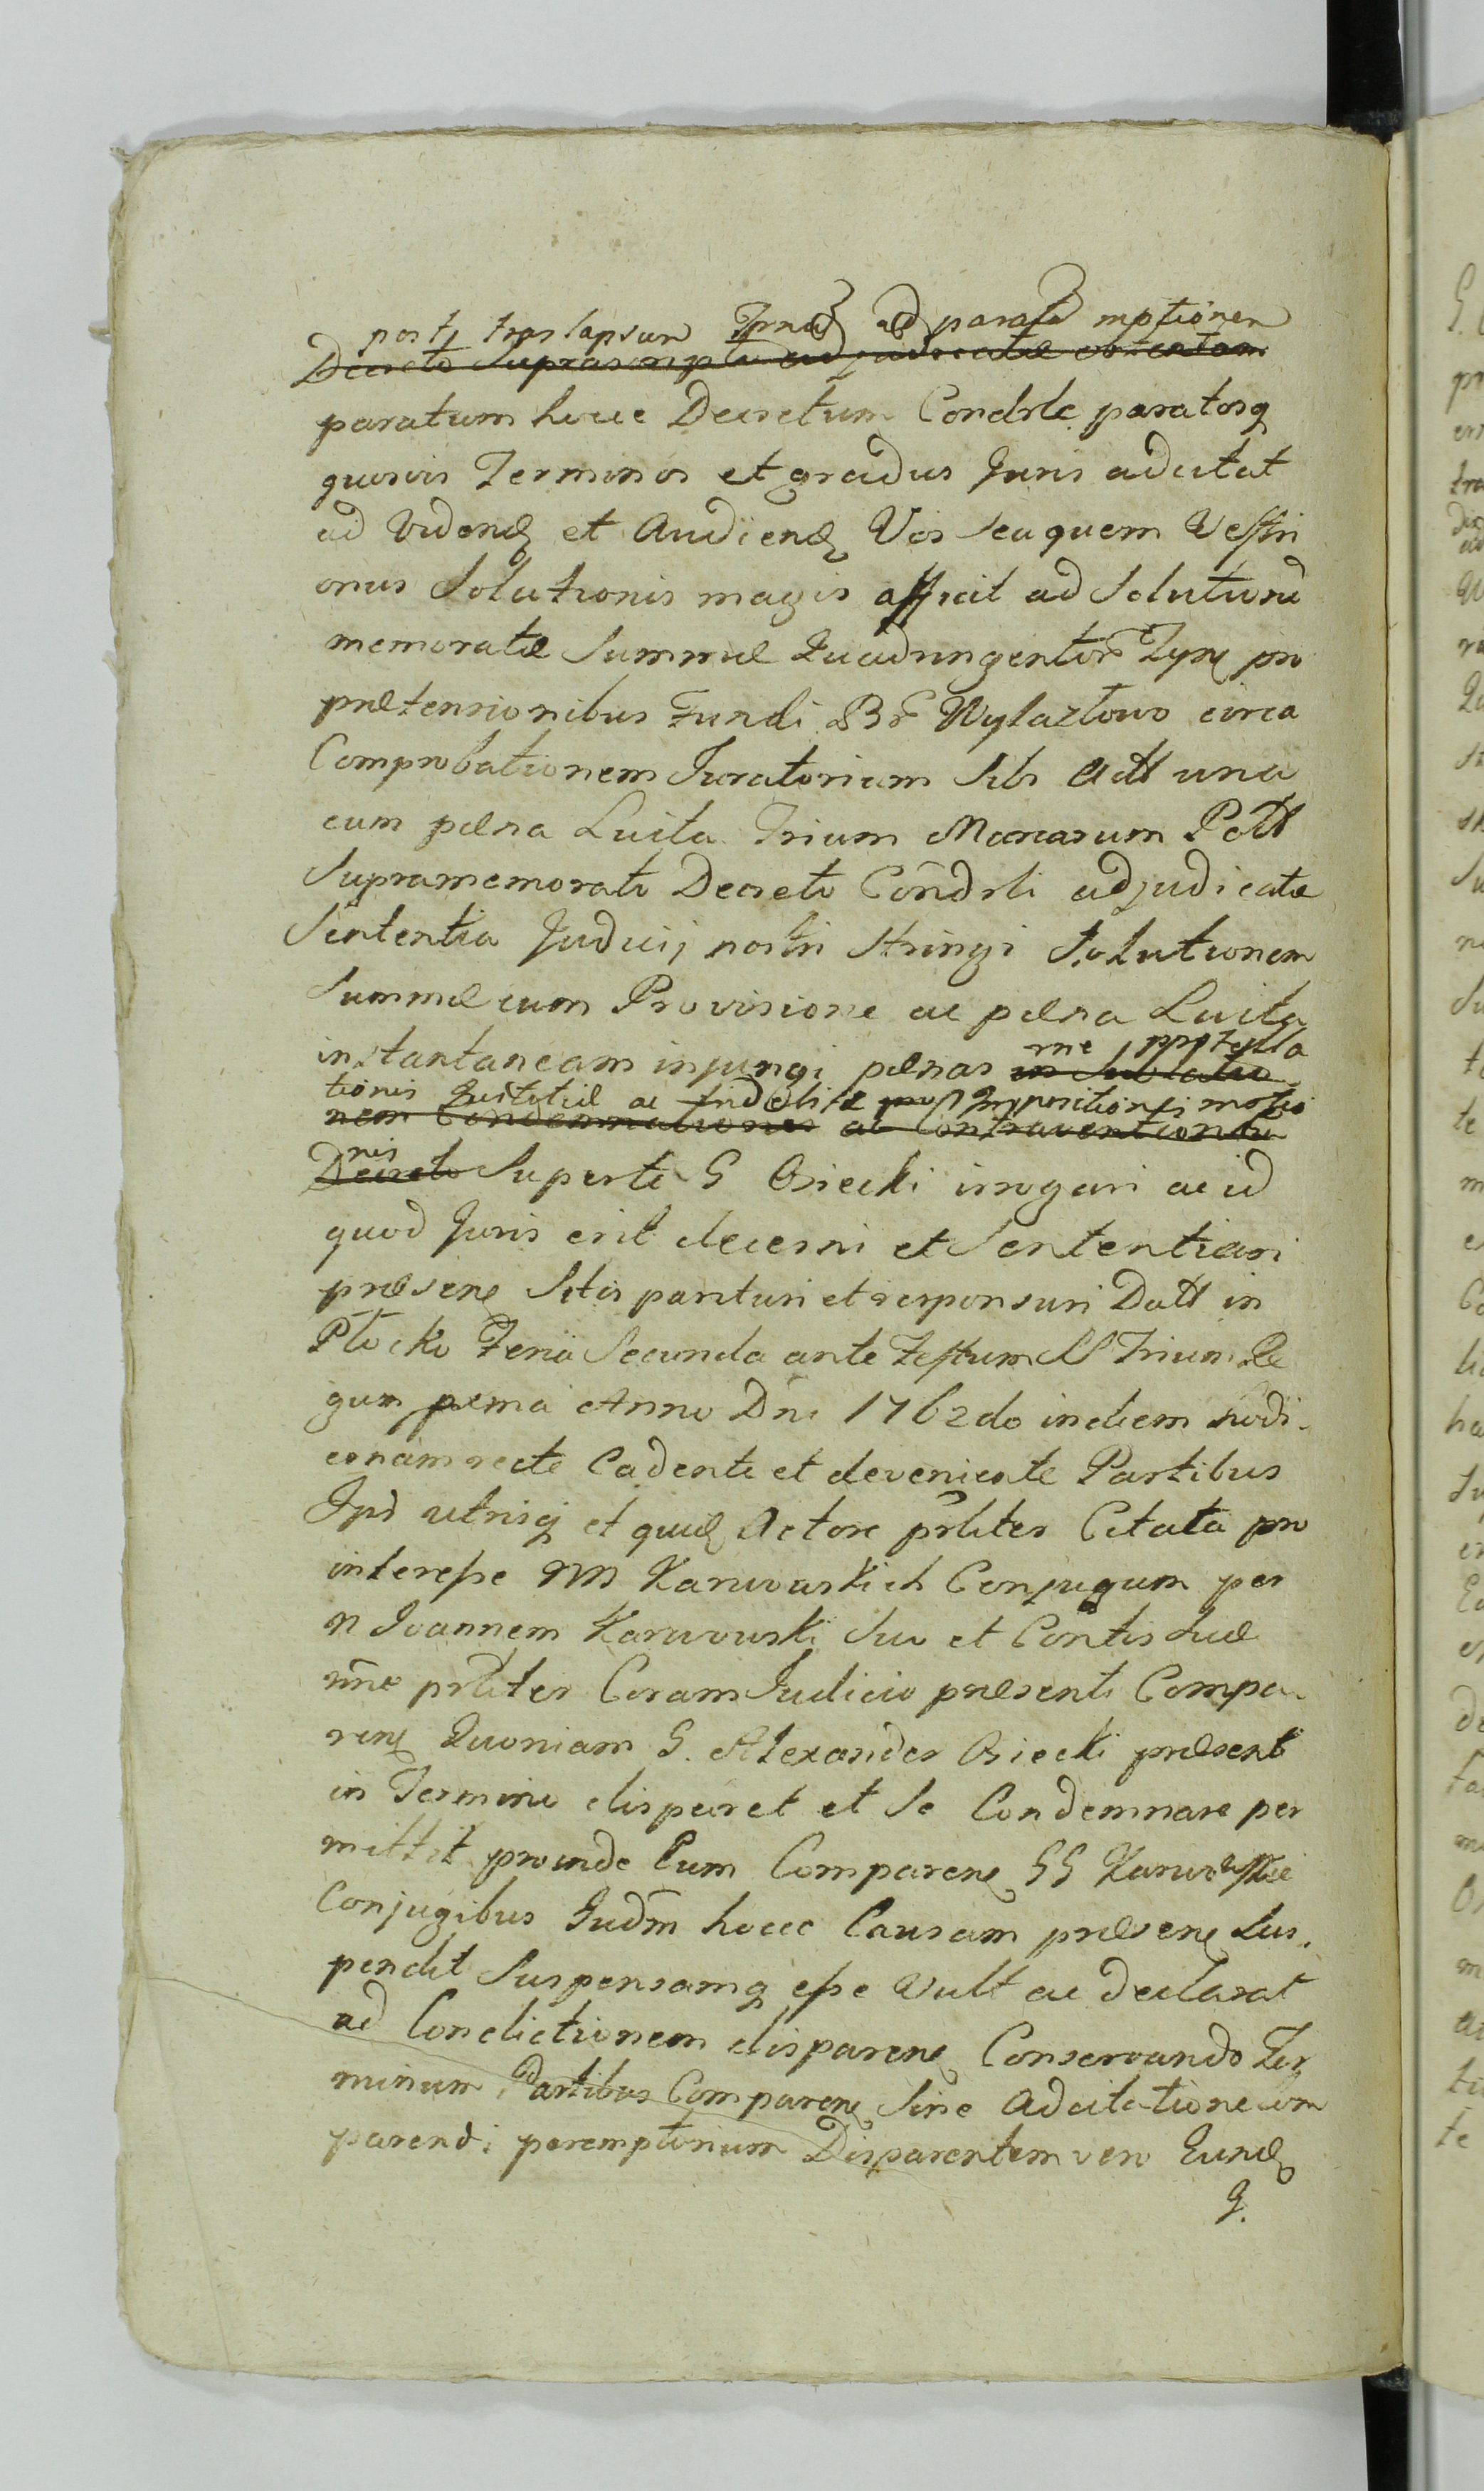 post translapsum ad parata motionem
Decreto Suprascripto adjudicatæ obtentam
paratum hocce Decretum Condrle paratosq
quosvis Terminos et gradus Juris adcitat
ad Vidend et Audiend Vos seu quem Vestri
onus Solutionis magis afficit ad Solutione
memoratæ Summæ Quadringentor pro
prætensionibus Fundi Br Wylazłowo circa
Comprobationem Juratoriam Sibi Att una
cum pæna Luita Trium Marcarum Pott
Supramemorato Decreto Condrli adjudicatæ
Sententia Judicij nostri Stringi Solutionem
Summæ cum Provisione ac pæna Luita
instantaneam injungi pænas
tionis Justitiæ ac impositionis motio
nem Condemnationis ac Contraventionem
nis
Decreto Super te G Osiecki irrogari ac id
quod Juris erit decerni et Sententiari
præsenς Sitis parituri et responsuri Datt in
Płocko Feria Secunda ante Festum SS Trium Re
gum pxma Anno Dni 1762do in diem hodi-
ernam recte Cadente et deveniente Partibus
Ipś utrisq et quid Actore prliter Citata pro
interesse MM Karwowskich Conjugum per
N Joannem Karwowski Suo et Contis suæ
nne prliter Coram Judicio præsenti Compa-
renς Quoniam G. Alexander Osiecki præsent
in Termino disparet et se Condemnare per
mittit proinde Eum Comparenς GG Karwowskie
Conjugibus Judm hocce Causam præsenς Sus-
pendit Suspensamq esse Vult ac declarat
ad Condictionem disparenς Conservando Ter
minum Partibus Comparenς Sine Adcitatione com
parendi peremptorium Disparentem vero Eund
G.